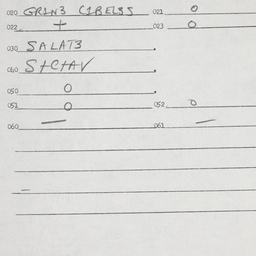 020 GRIN3 CIBELSS 021 0
022 + 023 0
030 SALAT3
040 S+C+AV
050 0
051 0 052 0
060 — 061 —